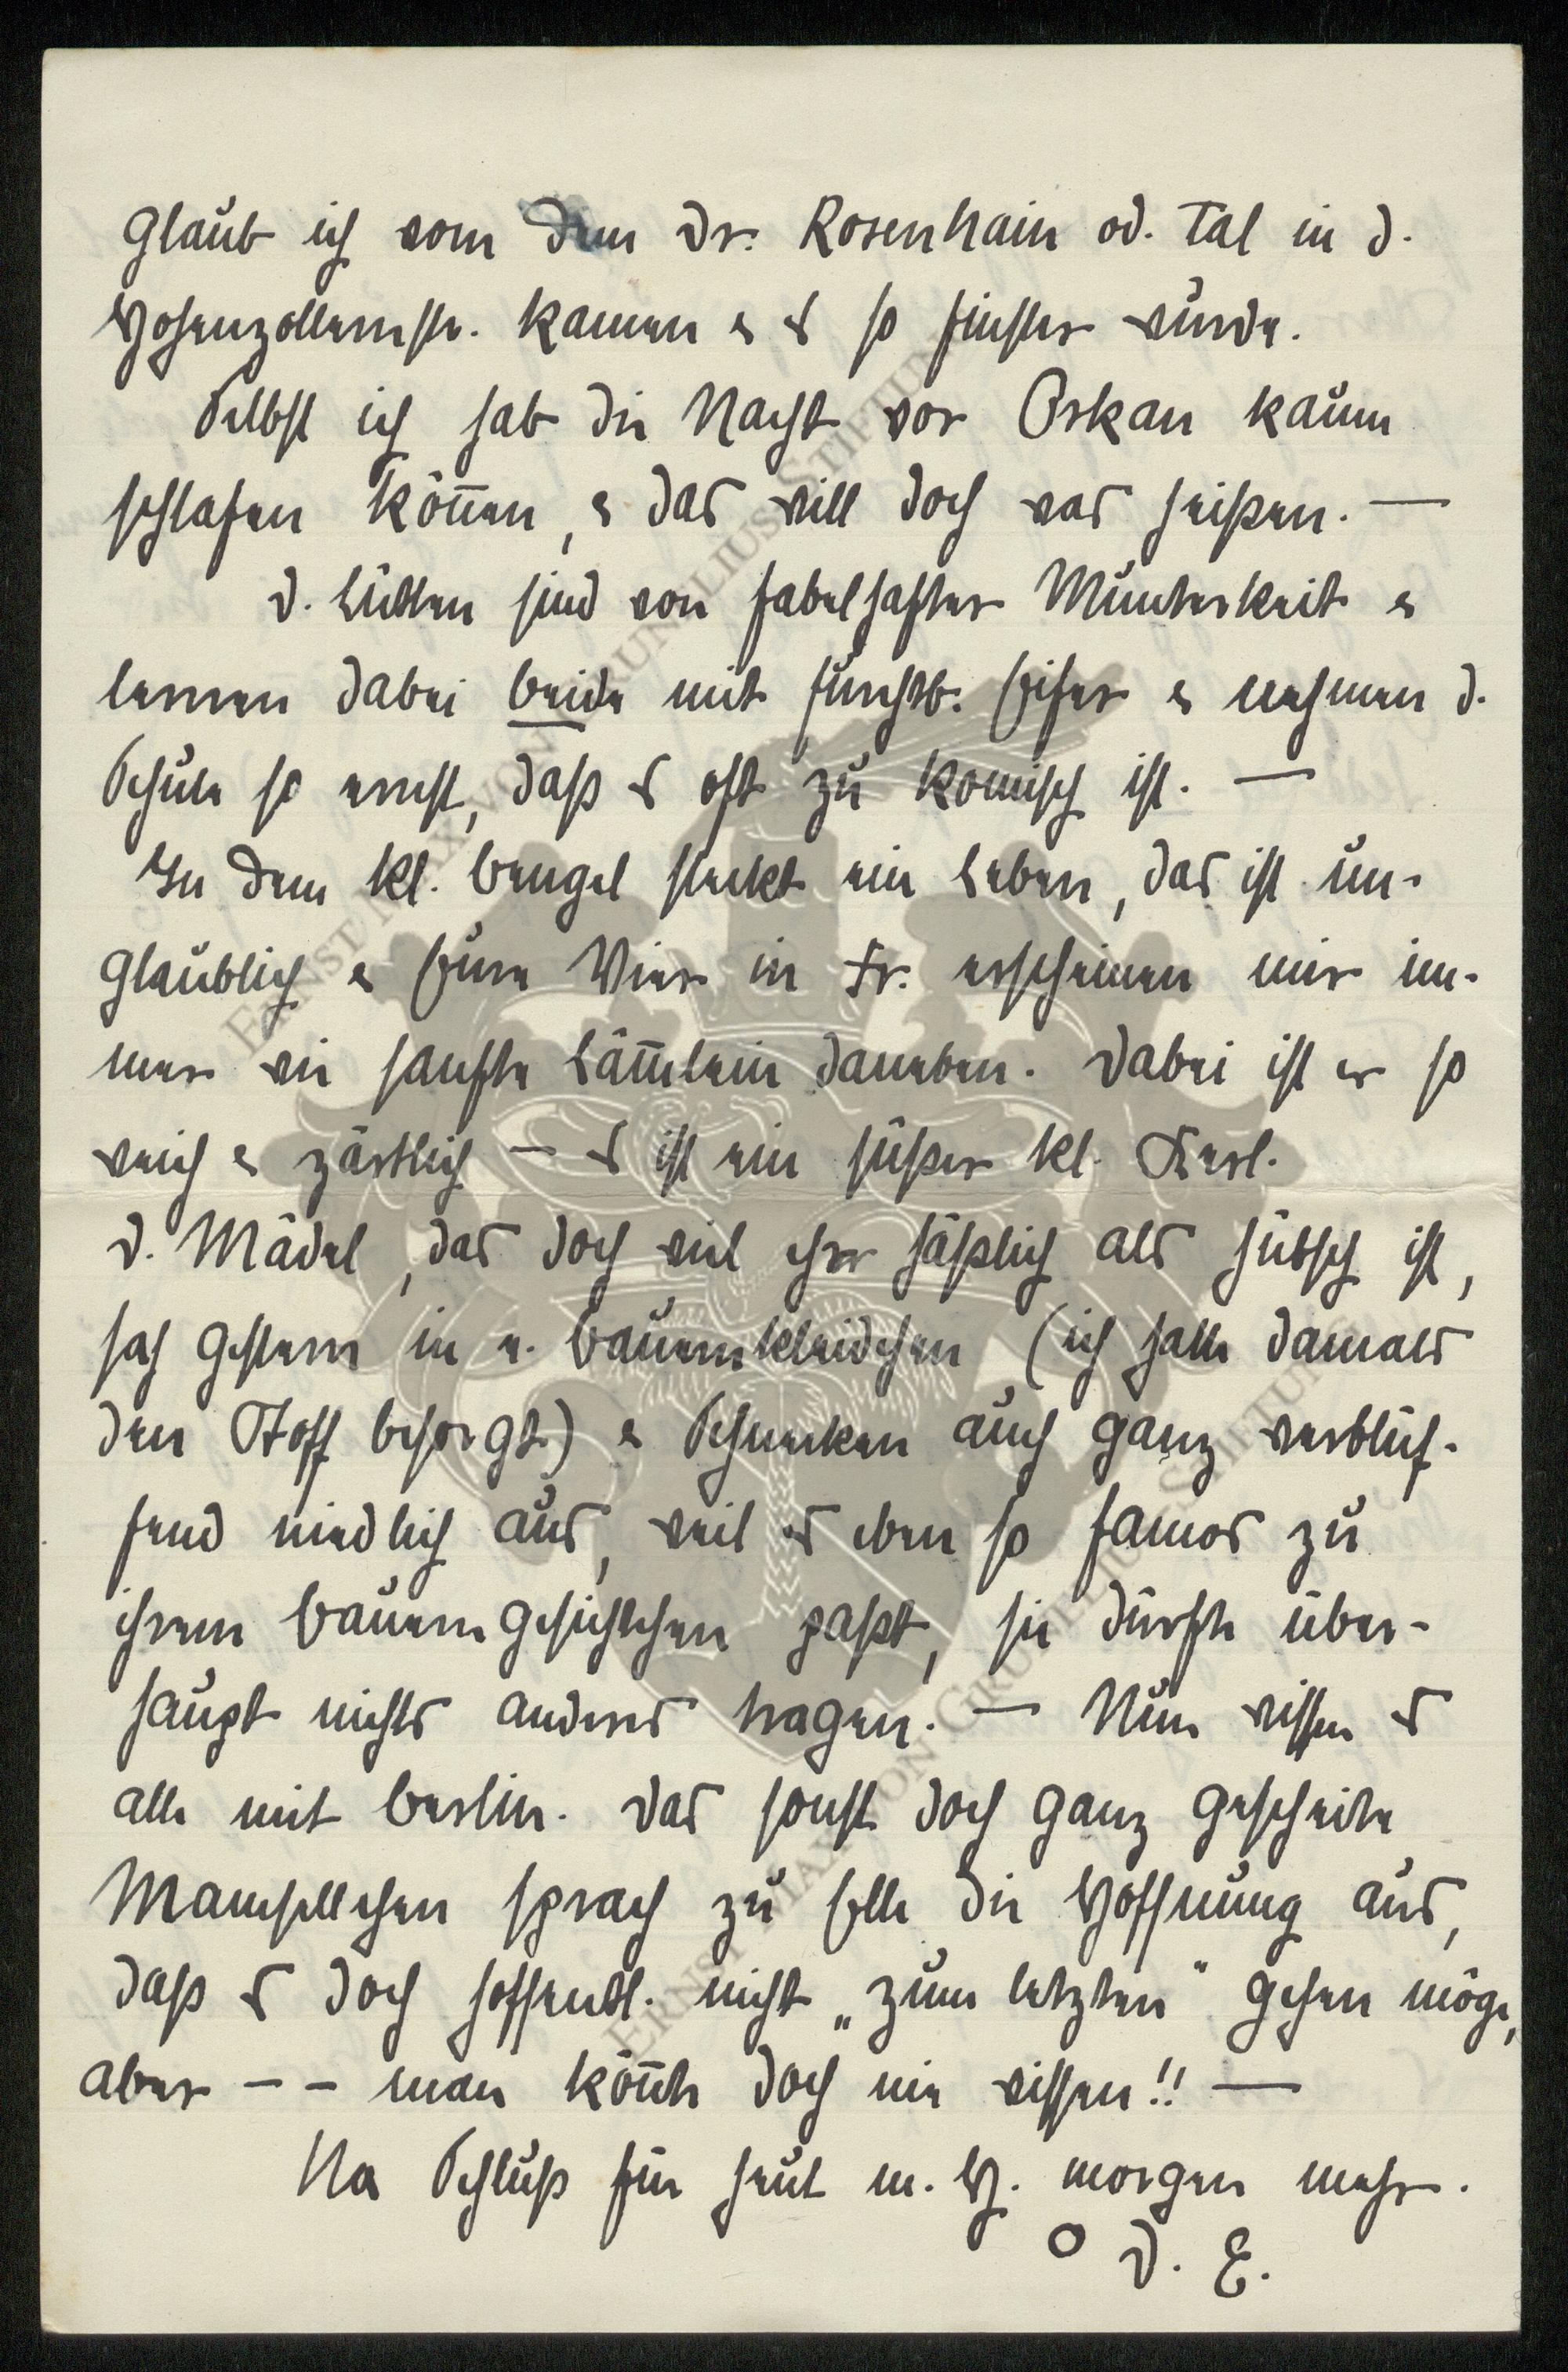 glaub ich vom dem Dr. Rosenhain od. Tal in d.
Hohenzollernstr. kamen & es so finster wurde.
Selbst ich hab die Nacht vor Orkan kaum
schlafen können, & das will doch was heißen. —
D. Lütten sind von fabelhafter Munterkeit &
lernen dabei beide mit furchtb. Eifer & nehmen d.
Schule so ernst, daß es oft zu komisch ist. —
In dem kl. Bengel steckt ein Leben, das ist un-
glaublich & Eure Vier in Fr. erscheinen mir im-
mer wie sanfte Lämmlein daneben. Dabei ist er so
weich & zärtlich - es ist ein süßer kl. Kerl.
D. Mädel, das doch viel ehr häßlich als hübsch ist,
sah gestern in e. Bauernkleidchen (ich hatte damals
den Stoff besorgt) & Schnecken auch ganz verblüf-
fend niedlich aus, weil es eben so famos zu
ihrem Bauerngesichtchen paßt, sie dürfte über-
haupt nichts anderes tragen. — Nun wissen es
alle mit Berlin. Das sonst doch ganz gescheite
Mamsellchen sprach zu Elle die Hoffnung aus,
daß es doch hoffentl. nicht „zum letzten" gehen möge,
aber - - man könnte doch nie wissen!! —
Na Schluß für heut m. H. morgen mehr.
O D. E.
ERNST MAX VON GRUNELIUS-STIFTUNG
ERNST MAX VON GRUNELIUS-STIFTUNG